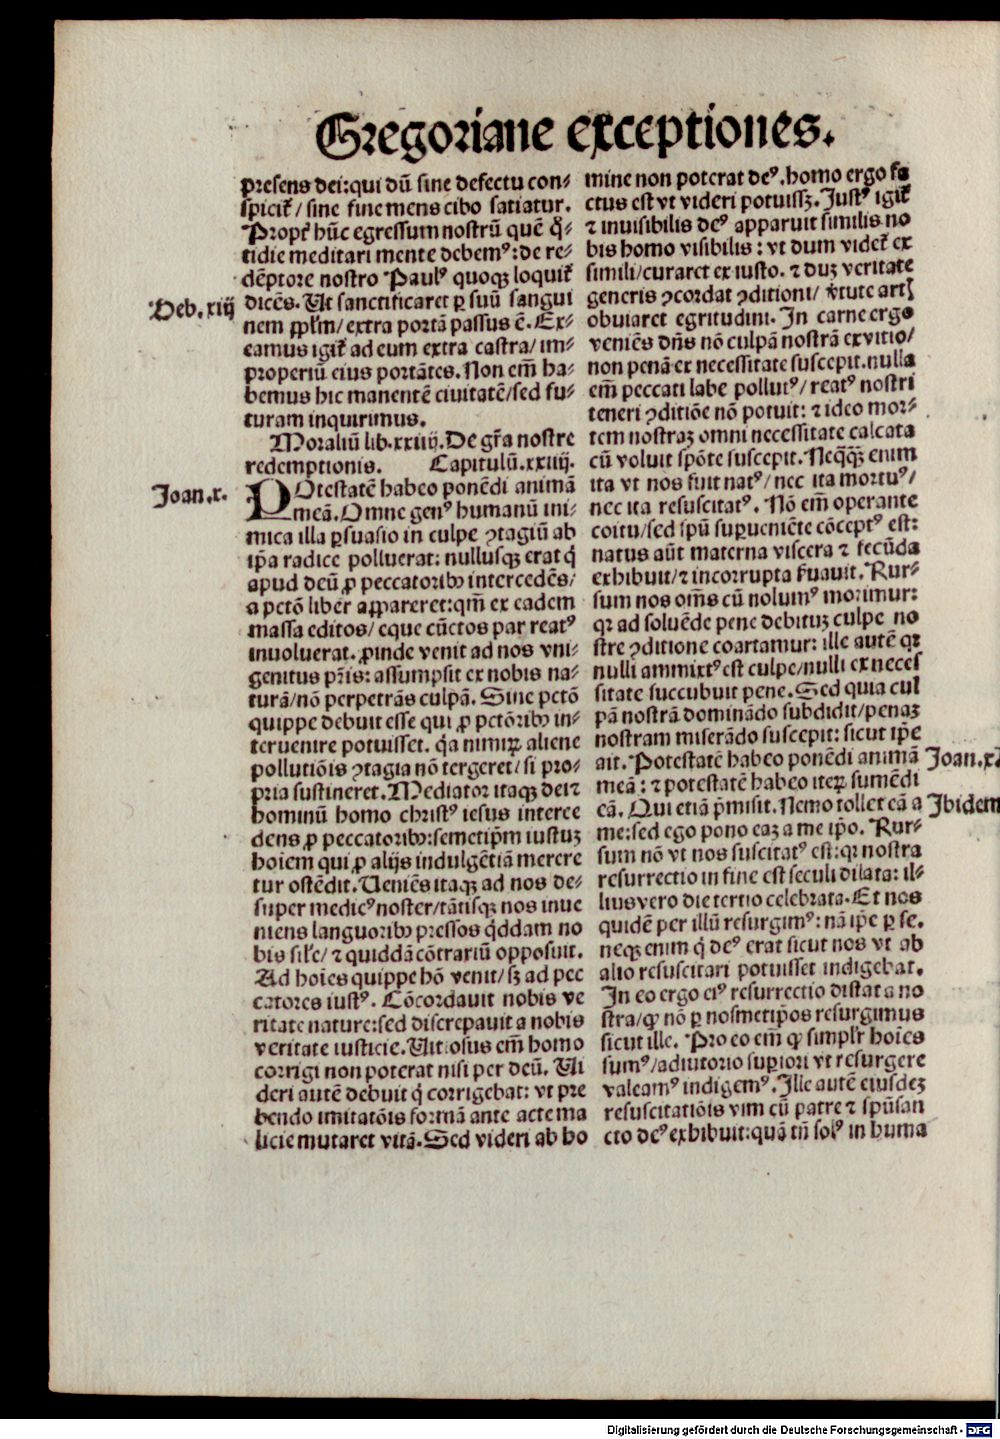 Gregoriane exceptiones.
presens dei: qui dũ sine defectu con⸗
spicit᷑ / sine fine mens cibo satiatur.
Propt᷑ hũc egressum nostrũ quẽ q̃⸗
tidie meditari mente debemꝰ: de re⸗
dẽptore nostro Paulꝰ quoqꝫ loquit᷑
Heb. xiij
dicẽs. Ut sanctificaret ꝑ suũ sangui
nem ꝓpl̃m / extra portã passus ẽ. Ex⸗
eamus igit᷑ ad eum extra castra / im⸗
properiũ eius portãtes. Non em̃ ha⸗
bemus hic manentẽ ciuitatẽ / sed fu⸗
turam inquirimus.
Moraliũ lib. xxiiij. De gr̃a nostre
redemptionis. Capitulũ. xxiiij.
Joan. x.
POtestatẽ habeo ponẽdi animã
meã. Omne genꝰ humanũ ini⸗
mica illa ꝑsuasio in culpe ꝯtagiũ ab
ip̃a radice polluerat: nullusqꝫ erat q̇
apud deũ ꝓ peccatoribꝫ intercedẽs /
a pctõ liber aꝑpareret: qm̃ ex eadem
massa editos / eque cũctos par reatꝰ
inuoluerat. ꝓinde venit ad nos vni⸗
genitus pr̃is: assumpsit ex nobis na⸗
turã / nõ perpetrãs culpã. Sine pctõ
quippe debuit esse qui ꝓ pctõribꝫ in⸗
teruenire potuisset. q̇a nimiꝝ aliene
pollutiõis ꝯtagia nõ tergeret / si pro⸗
pria sustineret. Mediator itaqꝫ dei ⁊
hominũ homo christꝰ iesus interce
dens ꝓ peccatoribꝫ: semetip̃m iustuꝫ
hoiem qui ꝓ alijs indulgẽtiã merere
tur ostẽdit. Ueniẽs itaqꝫ ad nos de⸗
super medicꝰ noster / tãtisqꝫ nos inue
niens languoribꝫ pressos q̇ddam no
bis sil̃e / ⁊ quiddã cõtrariũ opposuit.
Ad hoĩes quippe hõ venit / sꝫ ad pec
catores iustꝰ. Cõcordauit nobis ve
ritate nature: sed discrepauit a nobis
veritate iusticie. Uitiosus em̃ homo
corrigi non poterat nisi per deũ. Ui
deri autẽ debuit q̇ corrigebat: vt pre
bendo imitatõis formã ante acte ma
licie mutaret vitã. Sed videri ab ho
mine non poterat deꝰ. homo ergo fa
ctus est vt videri potuissꝫ. Justꝰ igit᷑
⁊ inuisibilis deꝰ apparuit similis no
bis homo visibilis: vt dum videt᷑ ex
simili / curaret ex iusto. ⁊ duꝫ veritate
generis ꝯcordat ꝯditioni / v̓tute art̃
obuiaret egritudini. In carne ergo
veniẽs dñs nõ culpã nostrã ex vitio /
non penã ex necessitate suscepit. nulla
em̃ peccati labe pollutꝰ / reatꝰ nostri
teneri ꝯditiõe nõ potuit: ⁊ ideo mor⸗
tem nostraꝫ omni necessitate calcata
cũ voluit spõte suscepit. Neq̃q̃ꝫ enim
ita vt nos fuit natꝰ / nec ita mortuꝰ /
nec ita resuscitatꝰ. Nõ em̃ operante
coitu / sed spũ suꝑueniẽte cõceptꝰ est:
natus aũt materna viscera ⁊ fecũda
exhibuit / ⁊ incorrupta s̓uauit. Rur⸗
sum nos om̃s cũ nolumꝰ morimur:
qꝛ ad soluẽde pene debituꝫ culpe no
stre ꝯditione coartamur: ille autẽ qꝛ
nulli ammixtꝰ est culpe / nulli ex neces
sitate succubuit pene. Sed quia cul
pã nostrã dominãdo subdidit / penaꝫ
nostram miserãdo suscepit: sicut ip̃e
ait. Potestatẽ habeo ponẽdi animã
Joan. x.
meã: ⁊ potestatẽ habeo iteꝝ sumẽdi
eã. Qui etiã p̃misit. Nemo tollet eã a
Jbidem
me: sed ego pono eaꝫ a me ip̃o. Rur⸗
sum nõ vt nos suscitatꝰ est: qꝛ nostra
resurrectio in fine est seculi dilata: il⸗
lius vero die tertio celebrata. Et nos
quidẽ per illũ resurgimꝰ: nã ip̃e ꝑ se.
neqꝫ enim q̇ deꝰ erat sicut nos vt ab
alio resuscitari potuisset indigebat.
In eo ergo eiꝰ resurrectio distat a no
stra / qꝙ nõ ꝑ nosmetip̃os resurgimus
sicut ille. Pro eo em̃ ꝙ simpl̃r hoĩes
sumꝰ / adiutorio suꝑiori vt resurgere
valeamꝰ indigemꝰ. Ille autẽ eiusdeꝫ
resuscitatiõis vim cũ patre ⁊ spũsan
cto deꝰ exhibuit: quã tñ solꝰ in huma
Digitalisierung gefördert durch die Deutsche Forschungsgemeinschaft - DFG